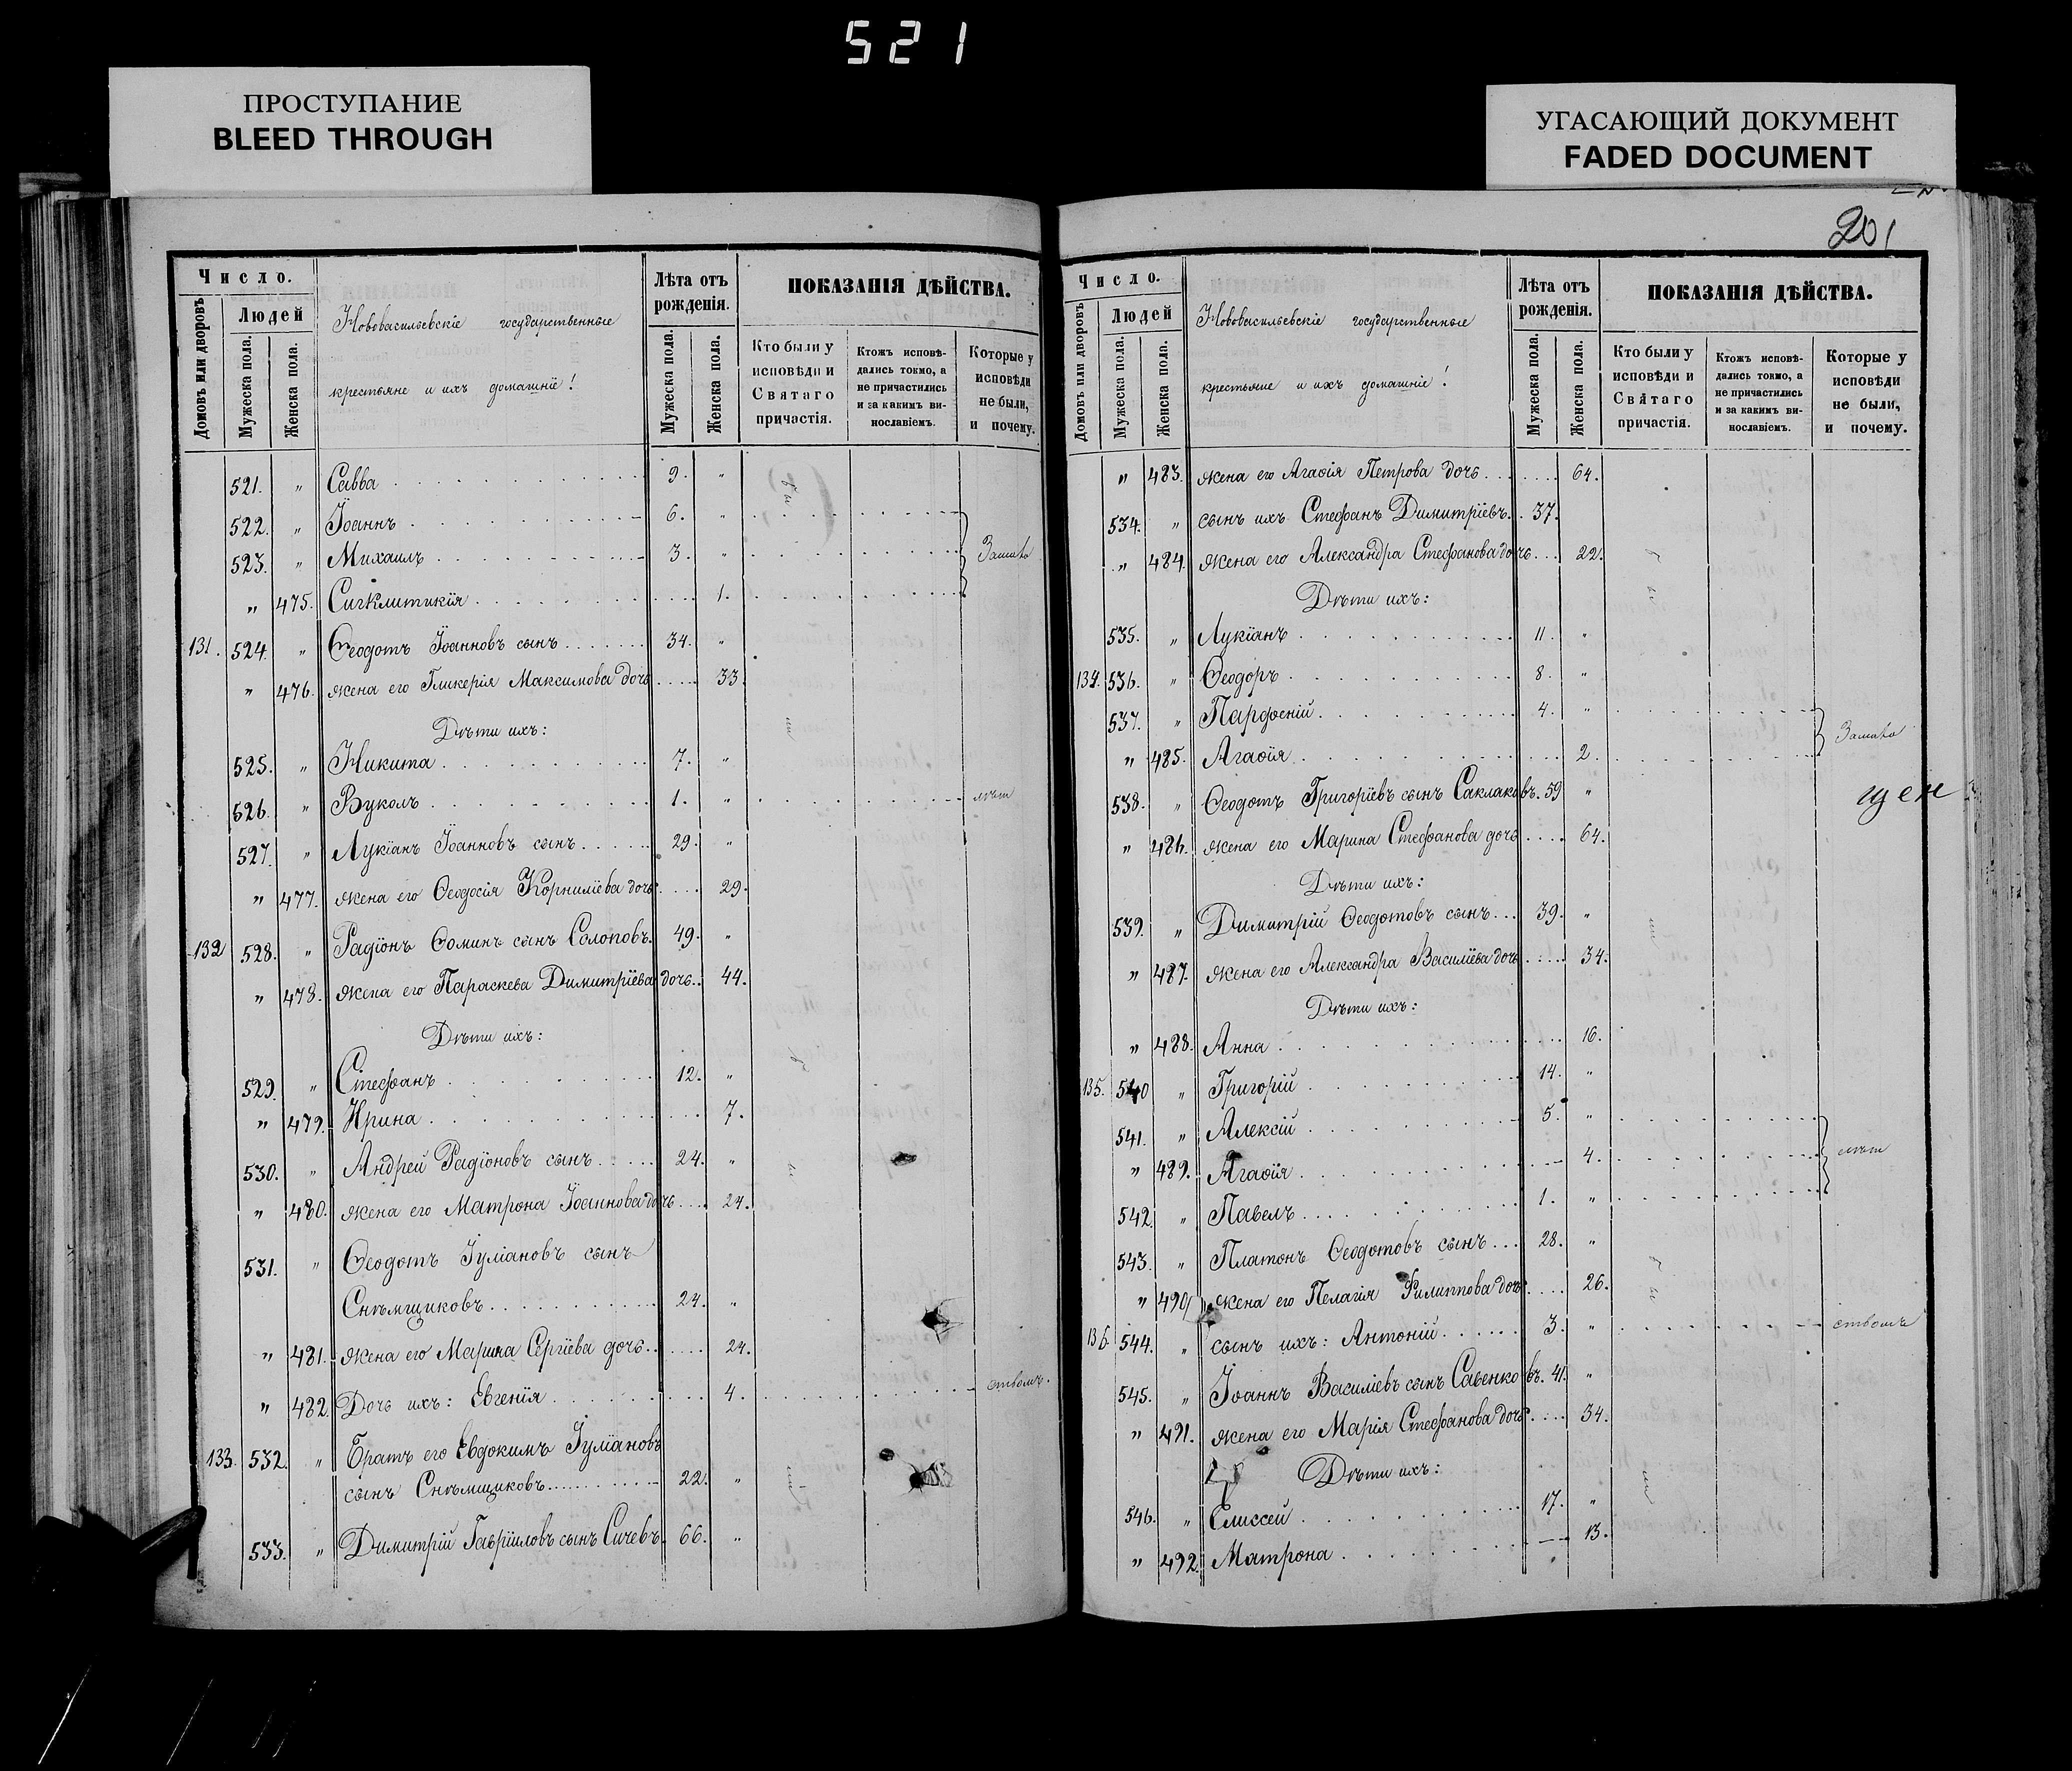 521
ПРОСТУПАНИЕ
BLEED THROUGH
УГАСАЮЩИЙ ДОКУМЕНТ
FADED DOCUMENT
201
Число.
Домовъ или дворовъ
Людей
Мужеска пола.
Женска пола.
Нововасильевскіе государственные
крестьяне и ихъ домашніе!
Лѣта отъ рожденія.
Мужеска пола.
Женска пола.
ПОКАЗАНІЯ ДѢЙСТВА.
Кто были у исповѣди и Святаго причастія.
Ктожъ исповѣ- дались токмо, а не причастились и за какимъ ви- нословіемъ.
Которые у исповѣди не были, и почему.
521. " Савва 9. "
522. " Іоаннъ 6. "
523. " Михаилъ 3. " Замало
" 475. Сигклитикія 1.
131. 524. " Ѳеодотъ Іоанновъ сынъ 34. "
" 476. жена его Гликерія Максимова дочь 33.
Дѣти ихъ:
525. " Никита 7. "
526. " Вуколъ 1. " лѣт
527. " Лукіанъ Іоанновъ сынъ 29. "
" 477. жена его Ѳеодосія Корниліева дочь 29.
132 528. " Радіонъ Ѳоминъ сынъ Солоповъ. 49. "
" 478. жена его Параскева Димитріева дочь 44.
Дѣти ихъ:
529. " Стефанъ 12. "
" 479. Ирина 7.
530. " Андрей Радіоновъ сынъ 24. "
" 480. жена его Матрона Іоаннова дочь 24.
531. " Ѳеодотъ Іуліановъ сынъ
Снѣмщиковъ 24. "
" 481. жена его Марина Сергіева дочь 24.
" 482. Дочь ихъ: Евгенія 4. ствомъ.
133. 532. " Братъ его Евдокимъ Іуліановъ
сынъ Снѣмщиковъ 22. "
533. " Димитрій Гавріиловъ сынъ Сичевъ. 66. "
Число.
Домовъ или дворовъ
Людей
Мужеска пола.
Женска пола.
Нововасильевскіе государственные
крестьяне и ихъ домашніе!
Лѣта отъ рожденія.
Мужеска пола.
Женска пола.
ПОКАЗАНІЯ ДѢЙСТВА.
Кто были у исповѣди и Святаго причастія.
Ктожъ исповѣ- дались токмо, а не причастились и за какимъ ви- нословіемъ.
Которые у исповѣди не были, и почему.
" 483. жена его Агаѳія Петрова дочь 64.
534. " сынъ ихъ Стефанъ Димитріевъ 37.
" 484. жена его Александра Стефанова дочь 22.
Дѣти ихъ:
535. " Лукіанъ 11. "
134. 536. " Ѳеодоръ 8. "
537. " Парфеній 4. "
Замало
" 485. Агаѳія 2.
538. " Ѳеодотъ Григоріевъ сынъ Саклаковъ. 59 "
" 486. жена его Марина Стефанова дочь 64.
Дѣти ихъ:
539. " Димитрій Ѳеодотовъ сынъ 39. "
" 487. жена его Александра Василіева дочь 34.
Дѣти ихъ:
" 488. Анна 16.
135. 540 " Григорій 14. "
541. " Алексій 5. "
" 489. Агаѳія 4. лѣт
542. " Павелъ 1. "
543. " Платонъ Ѳеодотовъ сынъ 28. "
" 490. жена его Пелагія Филиппова дочь 26.
136. 544. " сынъ ихъ: Антоній 3. " ствомъ
545. " Іоаннъ Василіевъ сынъ Савенковъ. 41. "
" 491. жена его Марія Стефанова дочь 34.
Дѣти ихъ:
546. " Елиссей 17. "
" 492. Матрона 13.